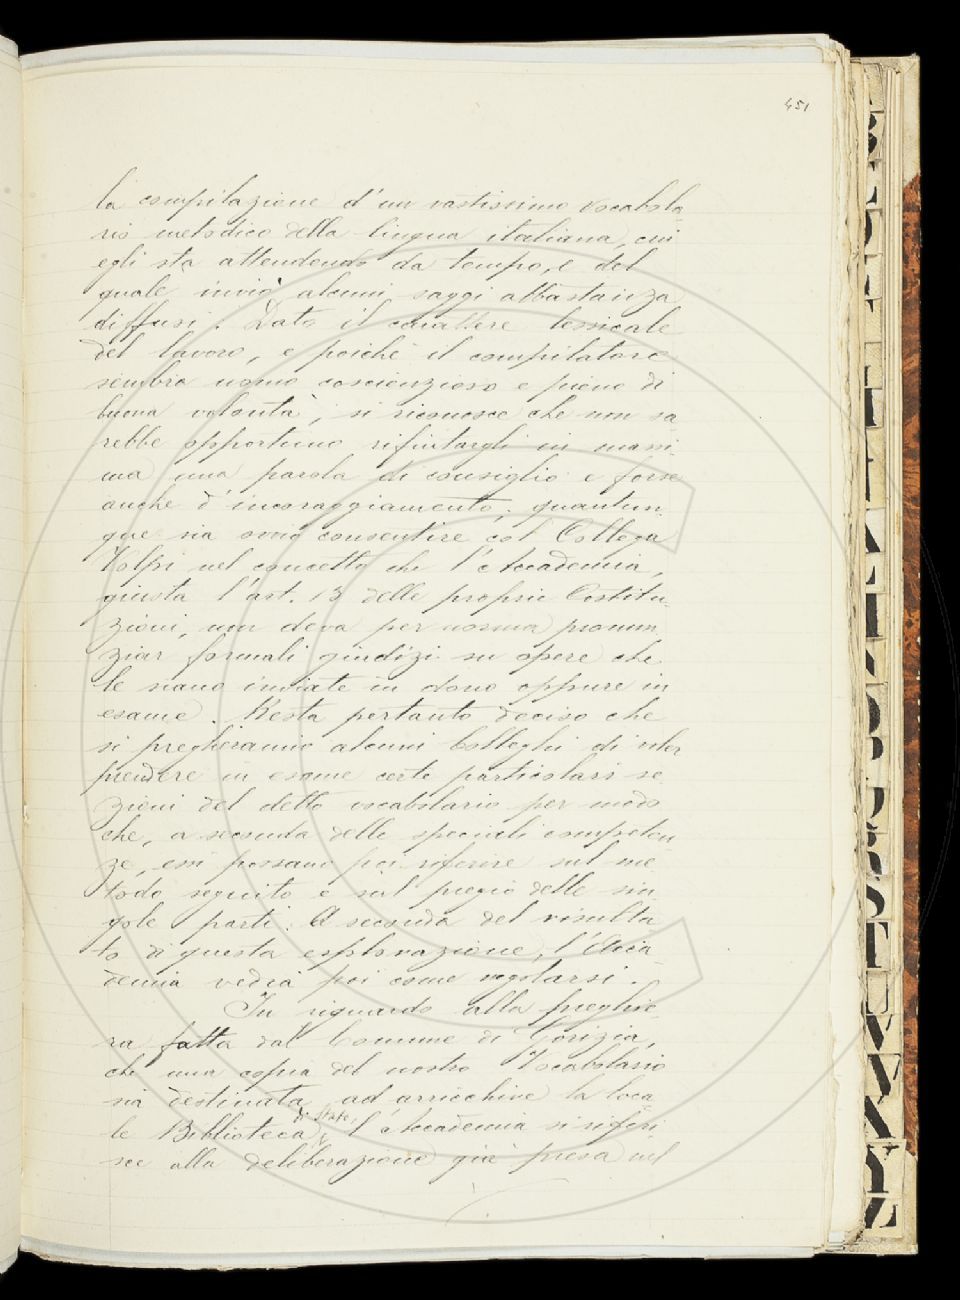 451
la compilazione d'un vastissimo vocabola
rio metodico della lingua italiana, cui
egli sta attendendo da tempo, e del
quale inviò alcuni saggi abbastanza
diffusi. Dato il carattere lessicale
del lavoro, e poichè il compilatore
sembra uomo coscienzioso e pieno di
buona volontà, si riconosce che non sa
rebbe opportuno rifiutargli in massi
ma una parola di consiglio e forse
anche d'incoraggiamento; quantun
que sia ovvio consentire col Collega
Volpi nel concetto che l'Accademia,
giusta l'art. 13 delle proprie Costitu
zioni, non deva per norma pronun
ziar formali giudizi su opere che
le siano inviate in dono oppure in
esame. Resta pertanto deciso che
si pregheranno alcuni Colleghi di
prendere in esame certe particolari se
zioni del detto vocabolario per modo
che, a seconda delle speciali competen
ze, essi possano poi riferire sul me
todo seguito e sul pregio delle sin
gole parti. A seconda del risulta
to di questa esplorazione, l'Acca
demia vedrà poi come regolarsi.
In riguardo alla preghie
ra fatta dal Comune di Gorizia,
che una copia del nostro Vocabolario
sia destinata ad arricchire la loca
le Biblioteca di Stato, l'Accademia si riferi
sce alla deliberazione già presa nel